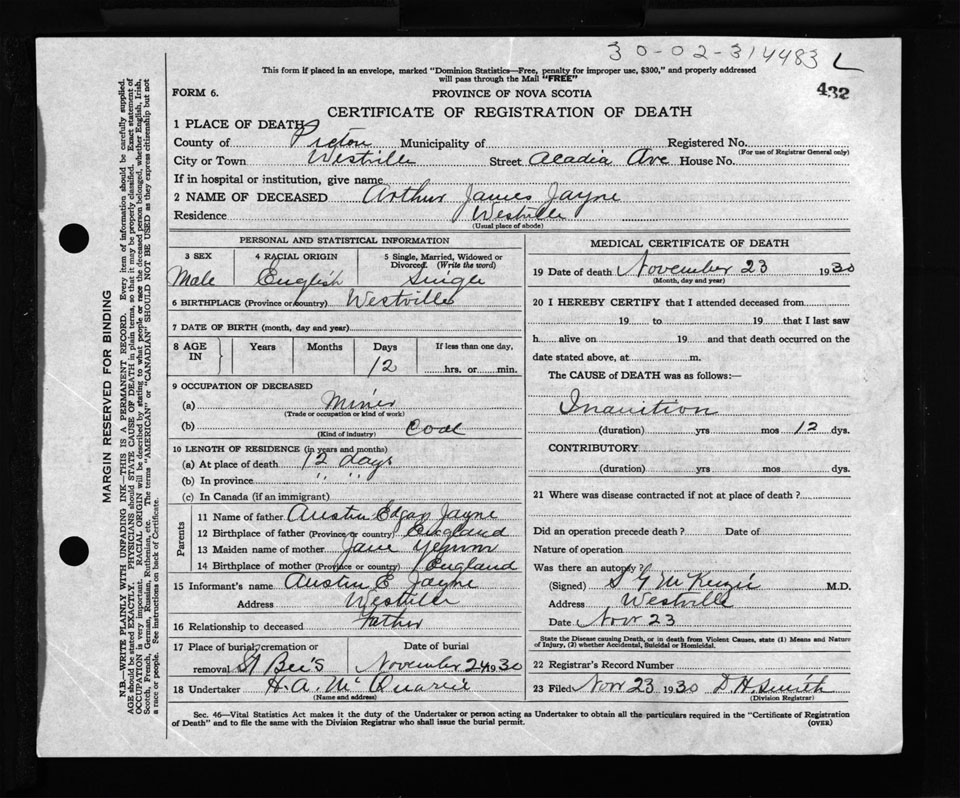 30-02-314483 L
This form if placed in an envelope, marked "Dominion Statistics—Free, penalty for improper use, $300," and properly addressed
will pass through the Mail "FREE"
432
FORM 6.
PROVINCE OF NOVA SCOTIA
CERTIFICATE OF REGISTRATION OF DEATH
1 PLACE OF DEATH
County of Pictou Municipality of Registered No.
(For use of Registrar General only)
City or Town Westville Street Acadia Ave House No.
If in hospital or institution, give name
2 NAME OF DECEASED Arthur James Jayne
Residence Westville
(Usual place of abode)
PERSONAL AND STATISTICAL INFORMATION
3 SEX 4 RACIAL ORIGIN 5 Single, Married, Widowed or
Divorced. (Write the word)
Male English Single
6 BIRTHPLACE (Province or country) Westville
7 DATE OF BIRTH (month, day and year)
8 AGE IN Years Months Days If less than one day,
12 hrs. or min.
9 OCCUPATION OF DECEASED
(a) Miner
(Trade or occupation or kind of work)
(b) Coal
(Kind of industry)
10 LENGTH OF RESIDENCE (in years and months)
(a) At place of death 12 days
(b) In province " " "
(c) In Canada (if an immigrant)
Parents
11 Name of father Austin Edgar Jayne
12 Birthplace of father (Province or country) England
13 Maiden name of mother Jane
14 Birthplace of mother (Province or country) England
15 Informant's name Austin E Jayne
Address Westville
16 Relationship to deceased Father
17 Place of burial, cremation or removal Date of burial
St Bee's November 24 1930
18 Undertaker H. A. McQuarrie
(Name and address)
MEDICAL CERTIFICATE OF DEATH
19 Date of death November 23 1930
(Month, day and year)
20 I HEREBY CERTIFY that I attended deceased from
19 to 19 that I last saw
h alive on 19 and that death occurred on the
date stated above, at m.
The CAUSE of DEATH was as follows:—
Inanition
(duration) yrs mos 12 dys.
CONTRIBUTORY
(duration) yrs. mos. dys.
21 Where was disease contracted if not at place of death ?
Did an operation precede death ? Date of
Nature of operation
Was there an autopsy ?
(Signed) S G McKenzie M.D.
Address Westville
Date Nov 23
State the Disease causing Death, or in death from Violent Causes, state (1) Means and Nature
of Injury, (2) whether Accidental, Suicidal or Homicidal.
22 Registrar's Record Number
23 Filed Nov 23 1930 D H. Smith
(Division Registrar)
Sec. 46—Vital Statistics Act makes it the duty of the Undertaker or person acting as Undertaker to obtain all the particulars required in the "Certificate of Registration
of Death" and to file the same with the Division Registrar who shall issue the burial permit. (OVER)
MARGIN RESERVED FOR BINDING
N.B.—WRITE PLAINLY WITH UNFADING INK—THIS IS A PERMANENT RECORD. Every item of information should be carefully supplied.
AGE should be stated EXACTLY. PHYSICIANS should STATE CAUSE OF DEATH in plain terms, so that it may be properly classified. Exact statement of
OCCUPATION is very important. RACIAL ORIGIN will be described by stating to what people or race the deceased person belonged, whether English, Irish,
Scotch, French, German, Russian, Ruthenian, etc. The terms "AMERICAN" or "CANADIAN" SHOULD NOT BE USED as they express citizenship but not
a race or people. See instructions on back of Certificate.